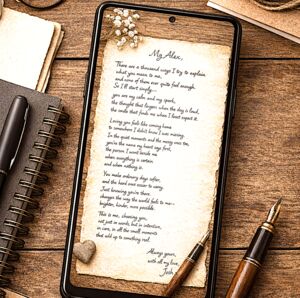 My Alex,
There are a thousand ways I try to explain
what you mean to me,
and none of them ever quite feel enough.
So I'll start simply—
you are my calm and my spark,
the thought that lingers when the day is loud,
the smile that finds me when I least expect it.
Loving you feels like coming home
to somewhere I didn't know I was missing.
In the quiet moments and the messy ones too,
you're the name my heart says first,
the person I want beside me
when everything is certain
and when nothing is.
You make ordinary days softer,
and the hard ones easier to carry.
Just knowing you're there
changes the way the world feels to me—
brighter, kinder, more possible.
This is me, choosing you,
not just in words, but in intention,
in care, in all the small moments
that add up to something real.
Always yours,
with all my love,
Josh